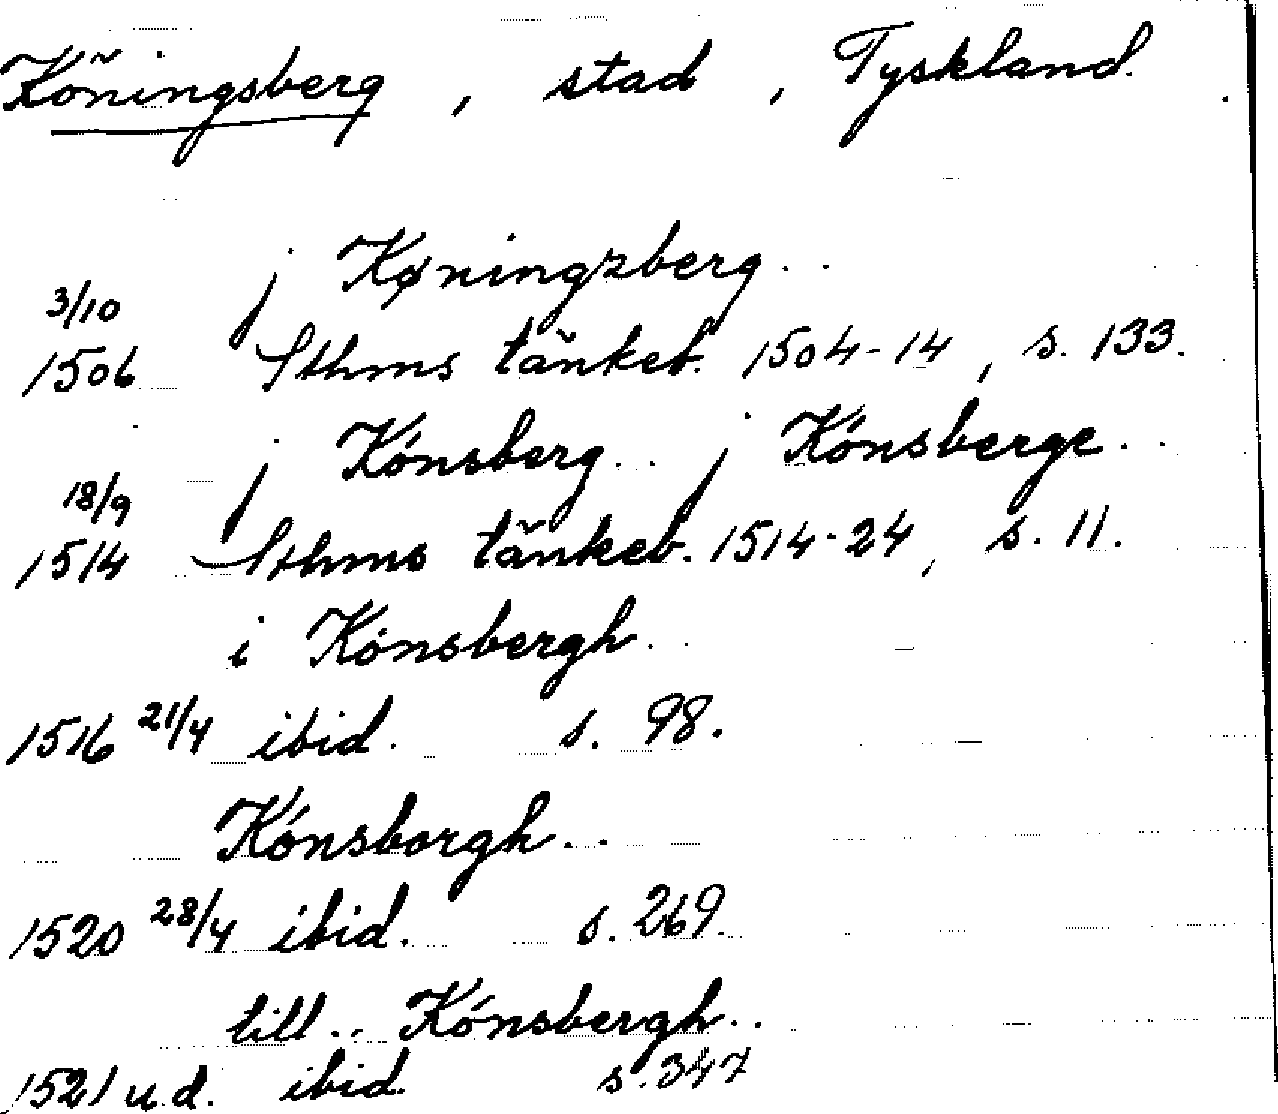 Köningsberg, stad, Tyskland.
j Køningzberg..
3/10
1506 Sthms tänkeb. 1504-14, s. 133.
j Kónsberg.. j Kónsberge..
18/9
1514 Sthms tänkeb. 1514-24, s. 11.
i Kónsbergh..
1516 21/4 ibid. s. 98.
Kónsborgh..
1520 28/4 ibid. s. 269.
till.. Kónsbergh..
1521 u.d. ibid. s. 347